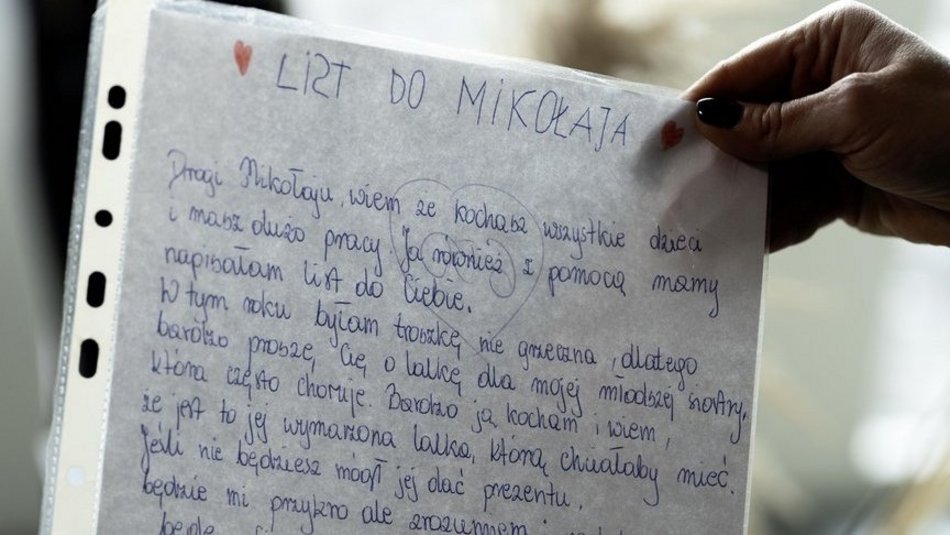 LIST DO MIKOŁAJA
Drogi Mikołaju, wiem że kochasz wszystkie dzieci
i masz dużo pracy. Ja również z pomocą mamy
napisałam list do Ciebie.
W tym roku byłam troszkę nie grzeczna, dlatego
bardzo proszę Cię o lalkę dla mojej młodszej siostry,
która często choruje. Bardzo ją kocham i wiem,
że jest to jej wymarzona lalka, którą chciałaby mieć.
Jeśli nie będziesz mógł jej dać prezentu,
będzie mi przykro ale zrozumiem i
będę